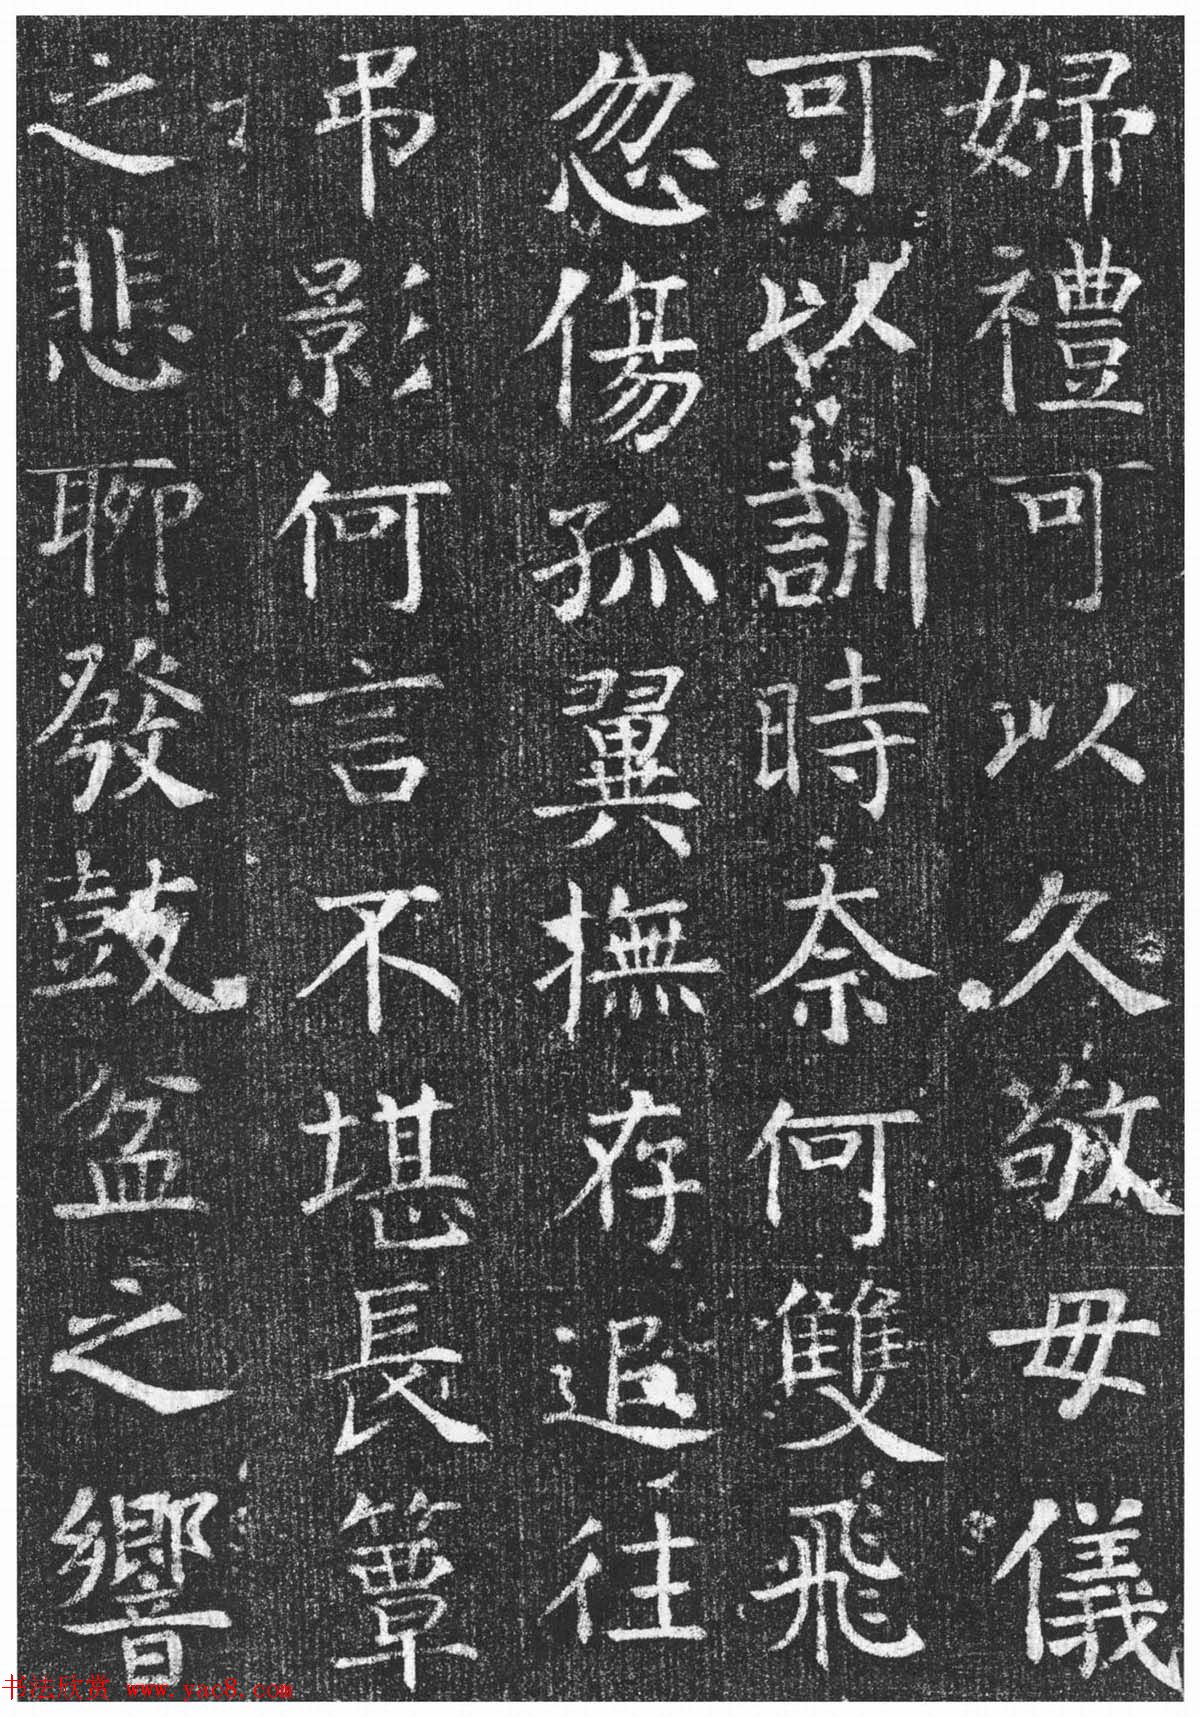 婦禮可以久敬毋儀
可以訓時奈何雙飛
忽傷孤翼撫存追往
弔影何言不堪長簟
之悲聊發鼓盆之響
书法欣赏 www.yac8.com